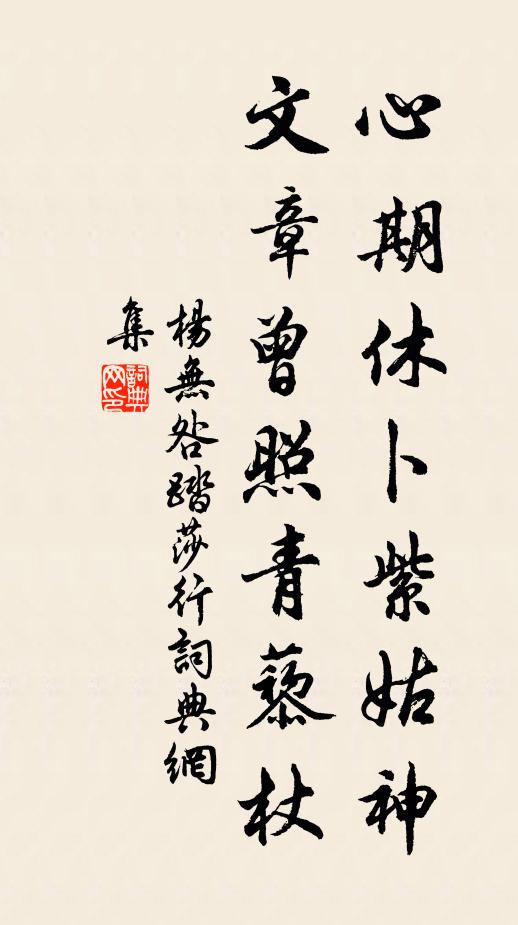 心期休卜紫姑神
文章曾照青藜杖
楊無咎踏莎行詞典網
集
詞典
网印